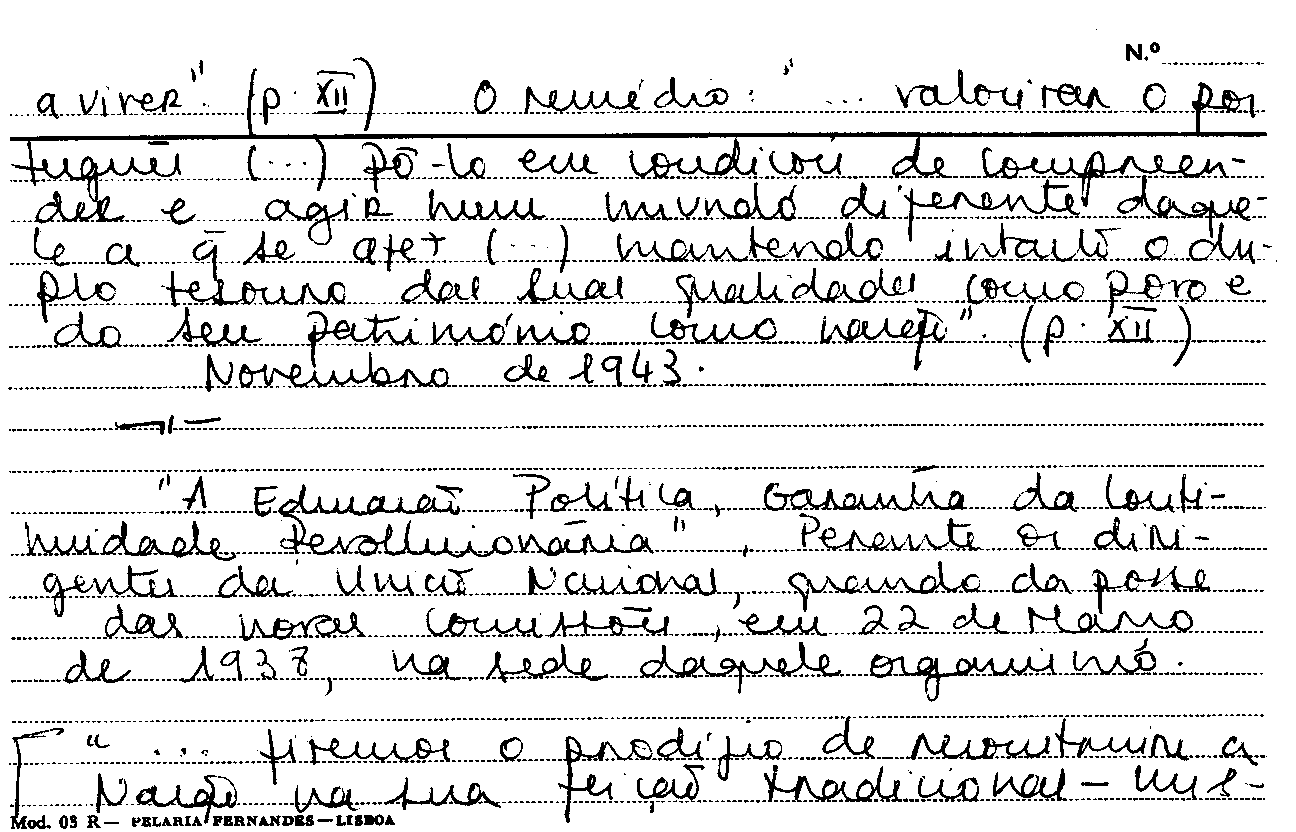 N.º
a viver". (p. XII) O remédio: "... valorizar o por
tuguês (...) pô-lo em condições de compreen-
der e agir num mundo diferente daque-
le a q̃ se afez (...) mantendo intacto o du-
plo tesouro das suas qualidades como povo e
do seu património como nação". (p. XII)
Novembro de 1943.
"A Educação Política, Garantia da Conti-
nuidade Revolucionária", Perante os diri-
gentes da União Nacional, quando da posse
das novas comissões, em 22 de Março
de 1938, na sede daquele organismo.
"... tivemos o prodígio de reconstruir a
Nação na sua feição tradicional -
Mod. 03 R — PELARIA FERNANDES — LISBOA